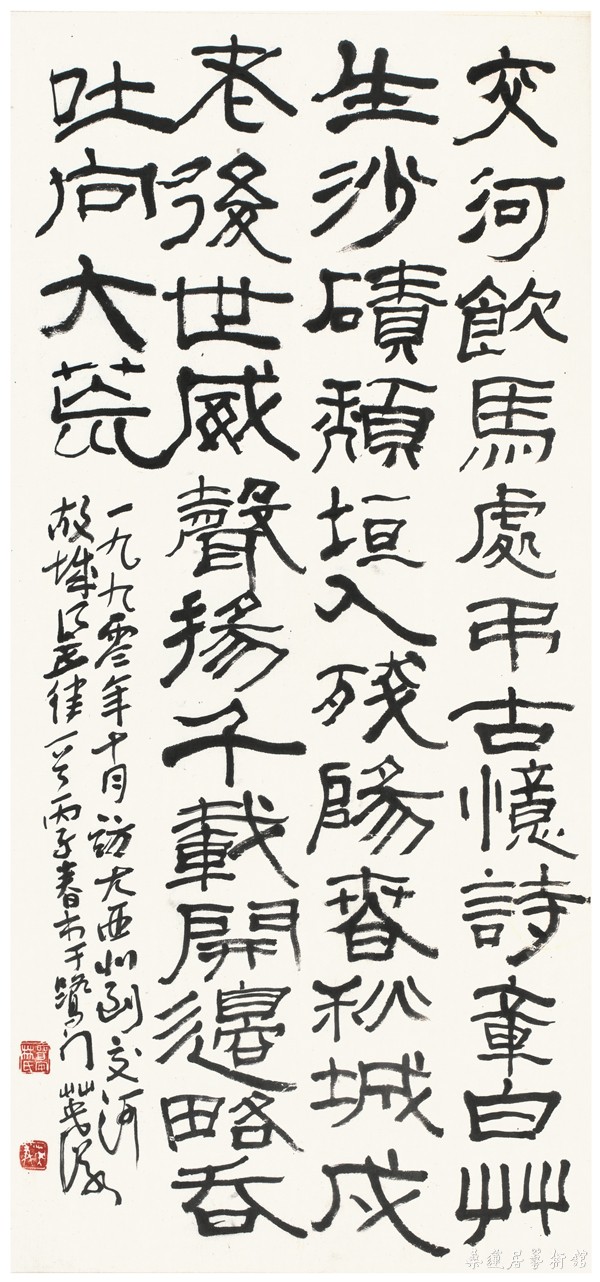 交河飲馬處弔古憶詩章白艸
生沙磧頹垣入殘陽春秋城戍
老後世威聲揚千載開邊略吞
吐向大荒
一九九零年十月訪古西州到交河
故城得五律一首丙子春書于鷺門
蓮居藝術館